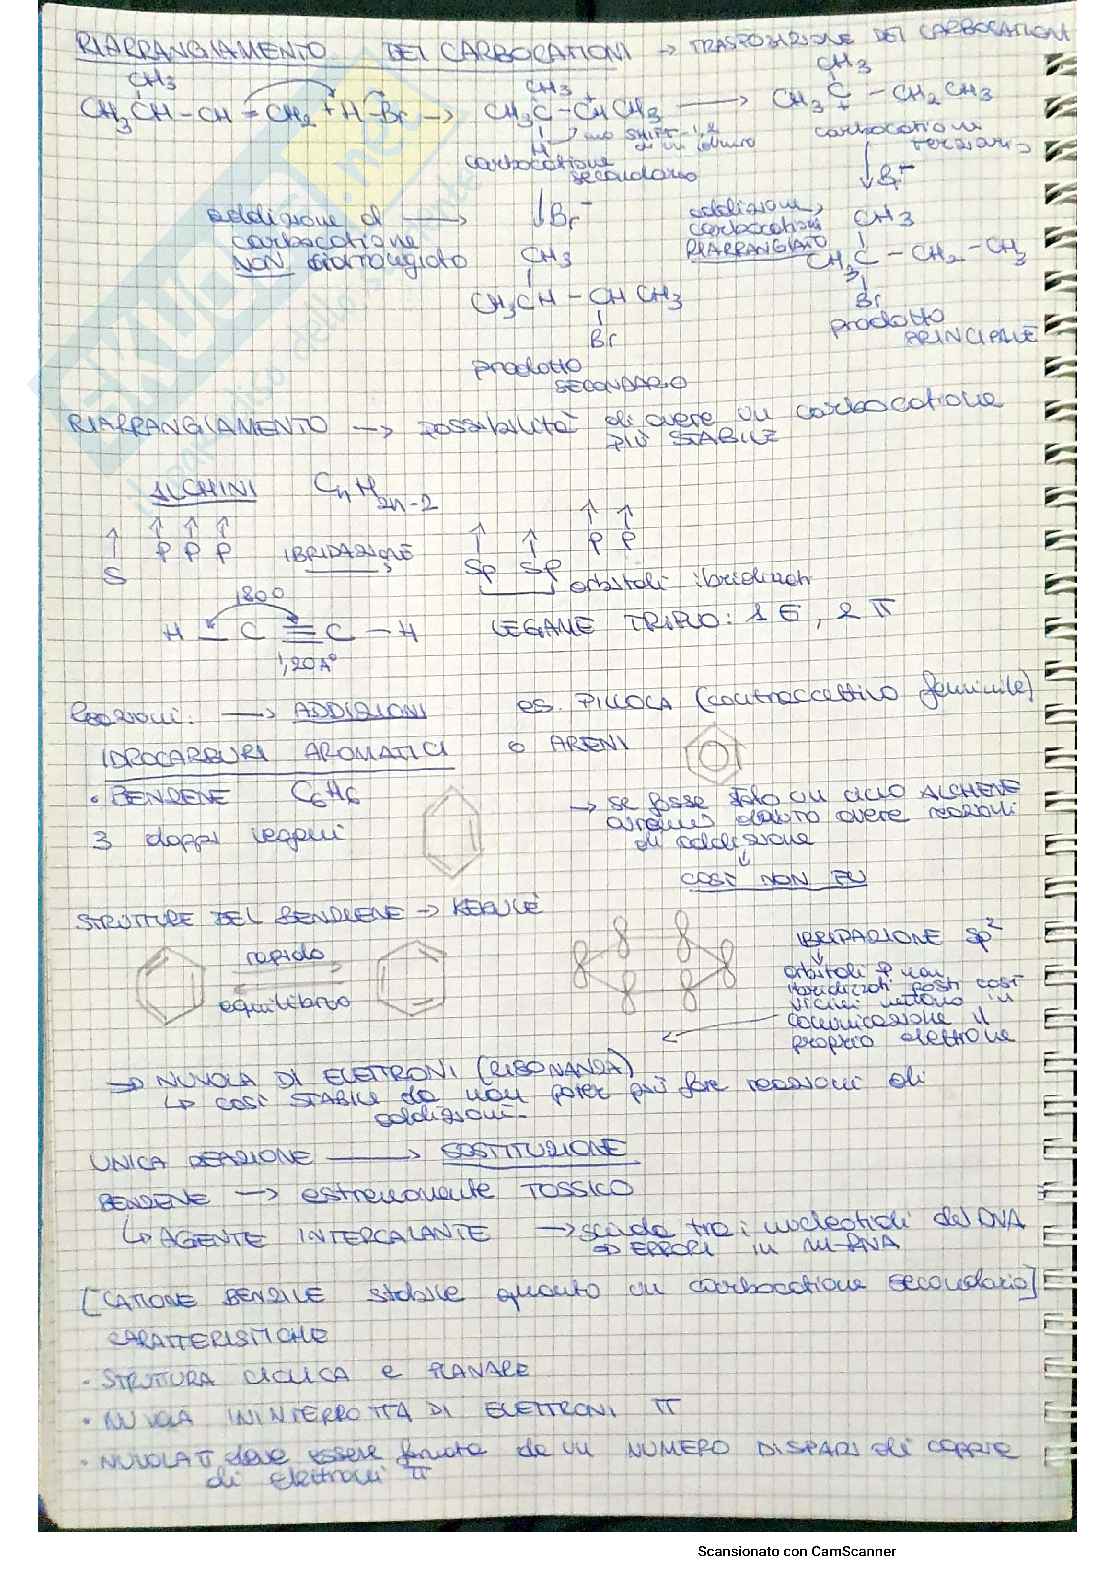 RIARRANGIAMENTO DEI CARBOCATIONI → TRASPOSIZIONE DEI CARBOCATIONI
CH3
CH3CH-CH=CH2 + H-Br → CH3C-CHCH3 → CH3C-CH2CH3
CH3 + CH3
+
H → uno SHIFT-1,2 di un idruro
carbocatione secondario
carbocatione terziario
↓Br-
↓Br-
addizione al → carbocatione NON riarrangiato
addizione carbocatione RIARRANGIATO
CH3
CH3CH - CHCH3
Br
prodotto SECONDARIO
CH3
CH3C - CH2 - CH3
Br
prodotto PRINCIPALE
RIARRANGIAMENTO → possibilità di avere un carbocatione
più STABILE
ALCHINI CnH2n-2
↑ ↑ ↑ ↑ ↑ ↑ ↑ ↑
S P P P IBRIDAZIONE Sp Sp P P
orbitali ibridizzati
180°
H - C ≡ C - H LEGAME TRIPLO: 1 σ, 2 π
1,20 A°
Reazioni: → ADDIZIONI es. PILLOLA (contraccettivo femminile)
IDROCARBURI AROMATICI o ARENI
• BENZENE C6H6 → se fosse solo un ciclo ALCHENE
3 doppi legami avremmo dovuto avere reazioni
di addizione
↓
COSÌ NON FU
STRUTTURE DEL BENZENE → KEKULÉ
rapido
equilibrio
IBRIDAZIONE Sp2
↓
orbitali p non
ibridizzati posti così
vicini mettono in
comunicazione il
proprio elettrone
→ NUVOLA DI ELETTRONI (RISONANZA)
↳ così STABILE da non poter più fare reazioni di
addizione.
UNICA REAZIONE → SOSTITUZIONE
BENZENE → estremamente TOSSICO
↳ AGENTE INTERCALANTE → tra i nucleotidi del DNA
⇒ ERRORI in m-RNA
[CATIONE BENZILE stabile quanto un carbocatione secondario]
CARATTERISTICHE
- STRUTTURA CICLICA e PLANARE
• NUVOLA ININTERROTTA DI ELETTRONI π
• NUVOLA π deve essere formata da un NUMERO DISPARI di coppie
di elettroni π
Scansionato con CamScanner
SKUOLA.net